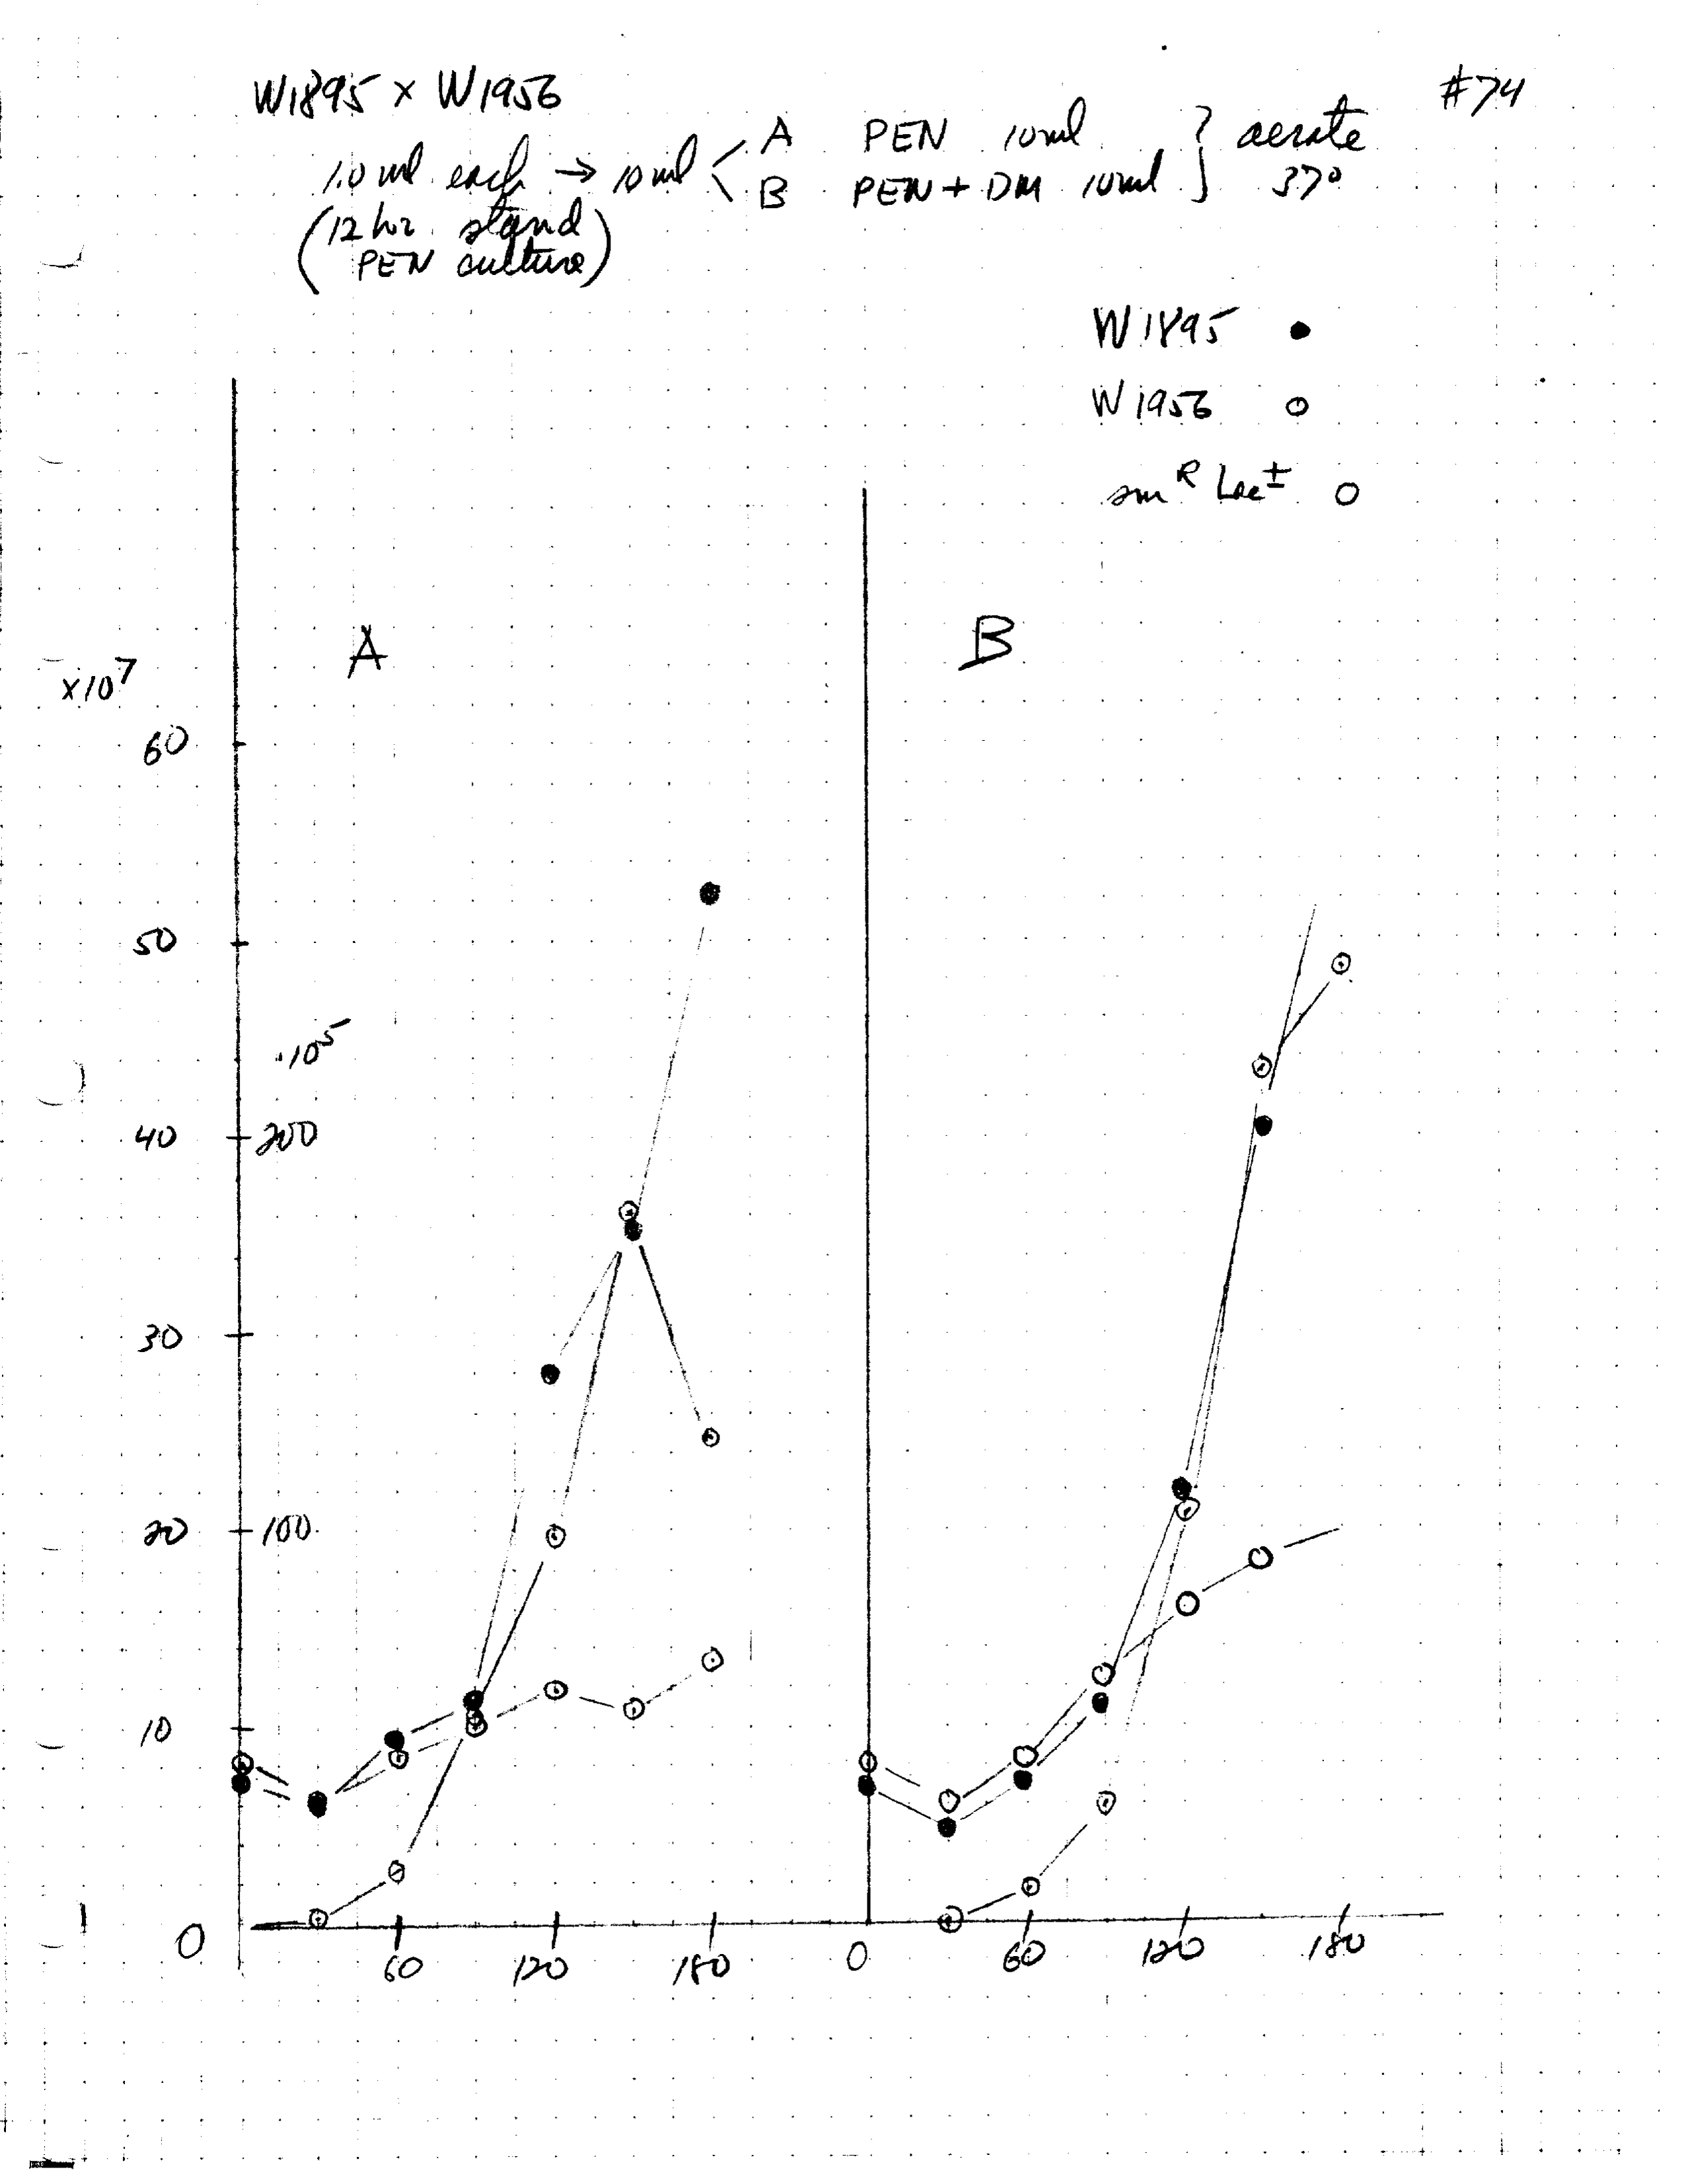 W1895 × W1956
#74
1.0 ml each → 10 ml < A PEN 10ml } aerate
B PEN + DM 10ml 37°
(12 hr stand
PEN culture)
W1895 ●
W1956 ○
sm^R Lac± ○
A
B
×10^7
60
50
·10^5
40
200
30
20
100
10
0
60
120
180
0
60
120
180